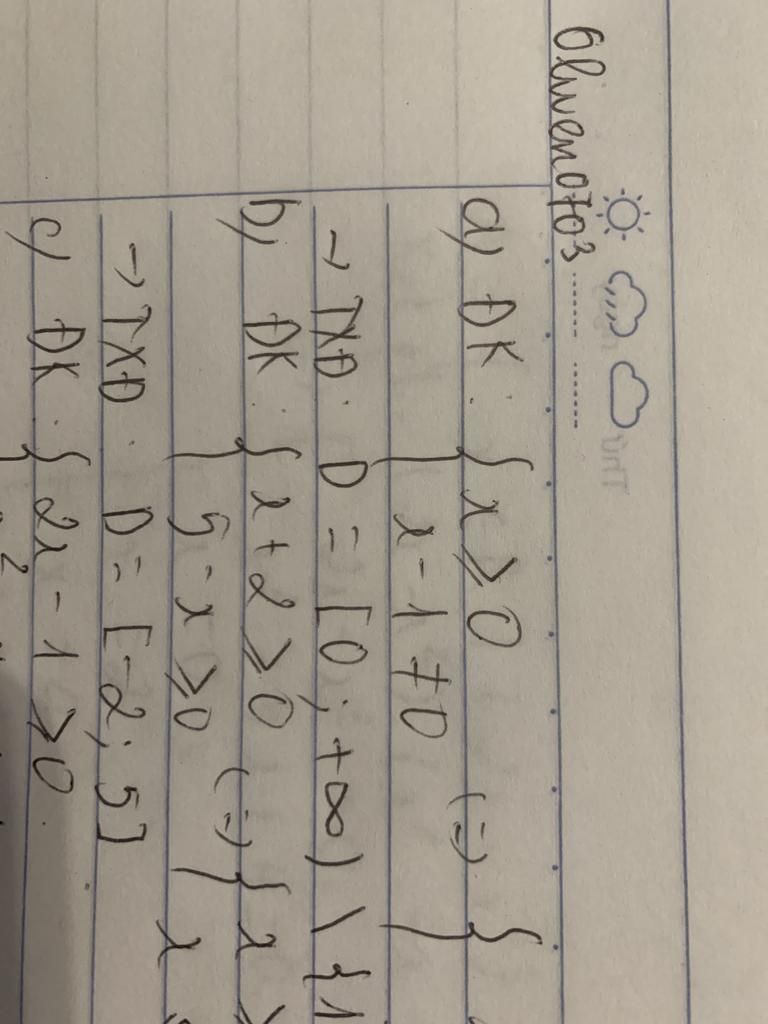 Oliwen0703
a) ĐK: { x ⩾ 0 (=) {
x - 1 ≠ 0
→ TXĐ: D = [0; +∞) \ {1
b) ĐK: { x + 2 ⩾ 0 (=) { x ⩾
5 - x ⩾ 0 x
→ TXĐ: D = [-2; 5]
c) ĐK: { 2x - 1 ⩾ 0